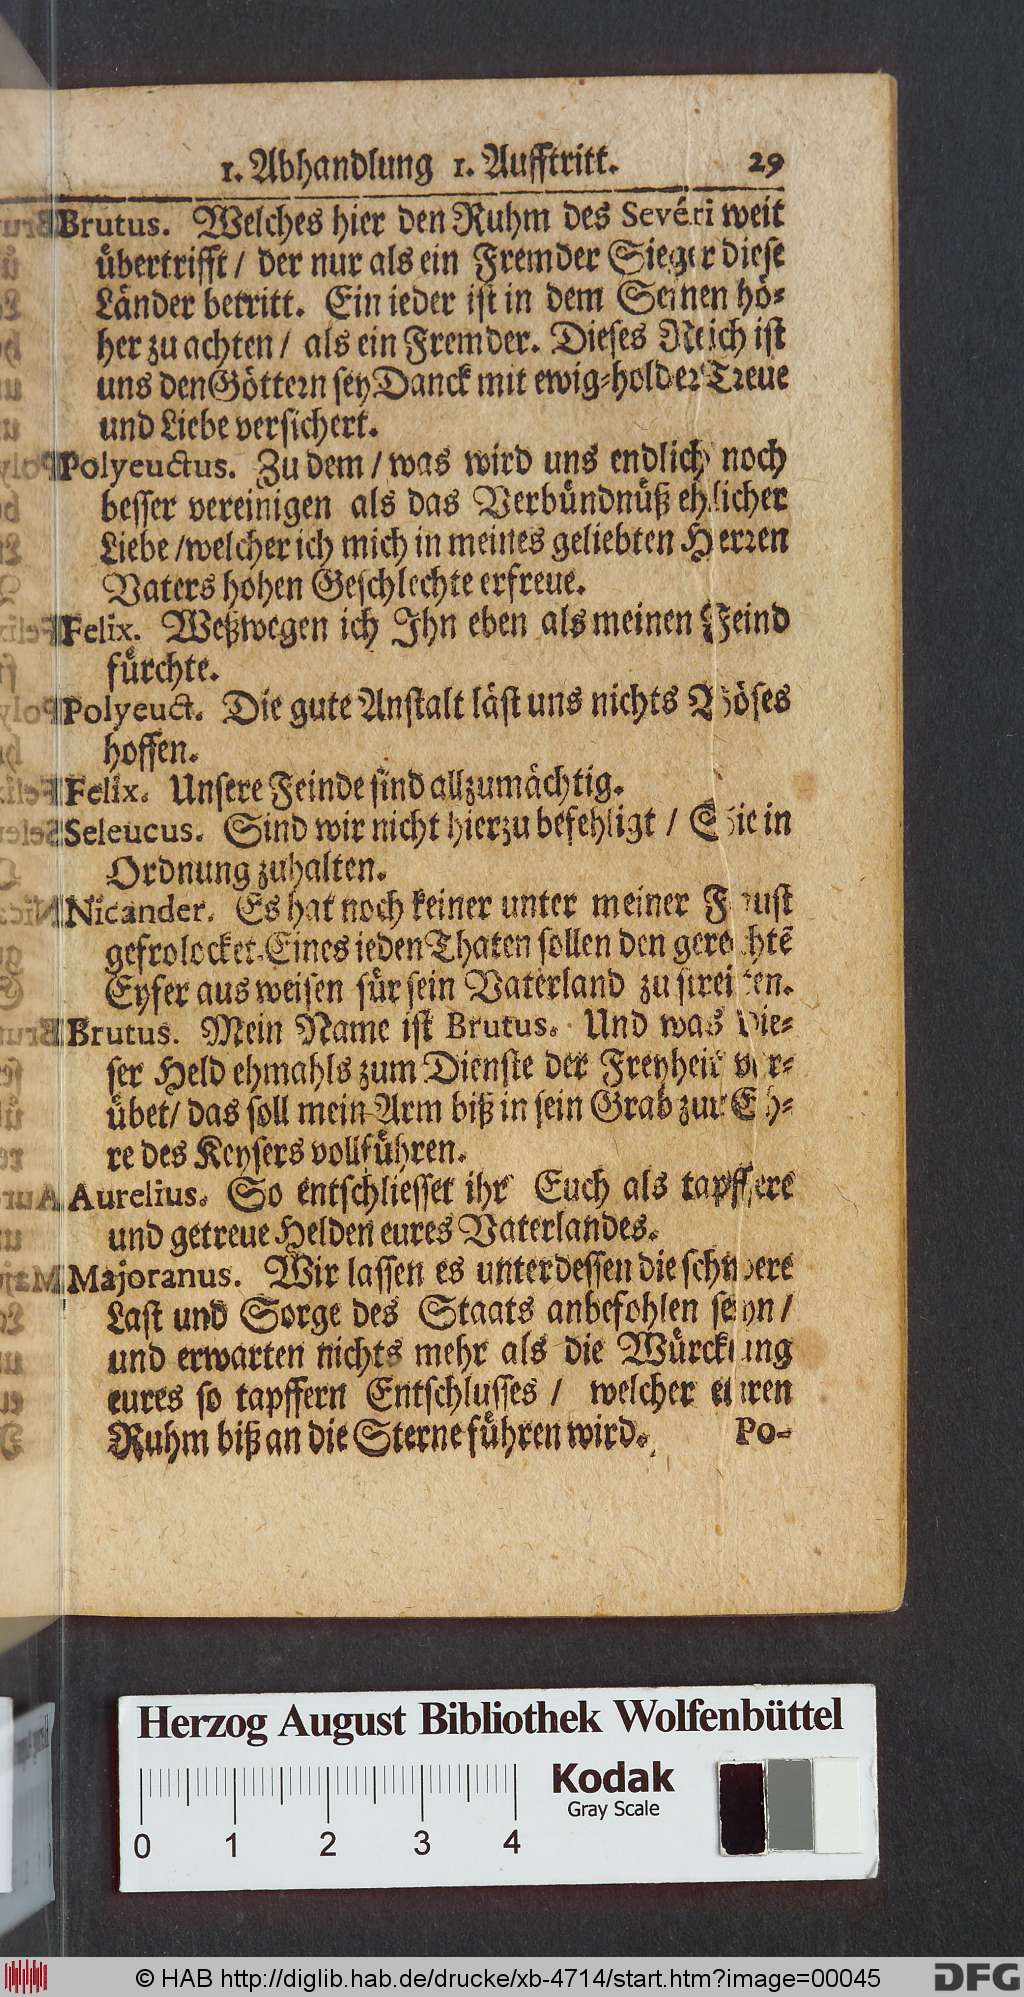 1. Abhandlung 1. Aufftritt. 29
Brutus. Welches hier den Ruhm des Severi weit
übertrifft / der nur als ein Fremder Sieger diese
Länder betritt. Ein ieder ist in dem Seinen hö-
her zu achten / als ein Fremder. Dieses Reich ist
uns den Göttern sey Danck mit ewig-holder Treue
und Liebe versichert.
Polyeuctus. Zu dem / was wird uns endlich noch
besser vereinigen als das Verbündnüß ehlicher
Liebe / welcher ich mich in meines geliebten Herren
Vaters hohen Geschlechte erfreue.
Felix. Weßwegen ich Ihn eben als meinen Feind
fürchte.
Polyeuct. Die gute Anstalt läst uns nichts Böses
hoffen.
Felix. Unsere Feinde sind allzumächtig.
Seleucus. Sind wir nicht hierzu befehligt / Sie in
Ordnung zuhalten.
Nicander. Es hat noch keiner unter meiner Faust
gefrolocket. Eines ieden Thaten sollen den gerechtē
Eyfer ausweisen für sein Vaterland zu streiten.
Brutus. Mein Name ist Brutus. Und was die-
ser Held ehmahls zum Dienste der Freyheit ver-
übet / das soll mein Arm biß in sein Grab zur Eh-
re des Keysers vollführen.
Aurelius. So entschliesset ihr Euch als tapffere
und getreue Helden eures Vaterlandes.
Majoranus. Wir lassen es unterdessen die schwere
Last und Sorge des Staats anbefohlen seyn /
und erwarten nichts mehr als die Würckung
eures so tapffern Entschlusses / welcher euren
Ruhm biß an die Sterne führen wird. Po-
Herzog August Bibliothek Wolfenbüttel
Kodak
Gray Scale
0 1 2 3 4
© HAB http://diglib.hab.de/drucke/xb-4714/start.htm?image=00045 DFG